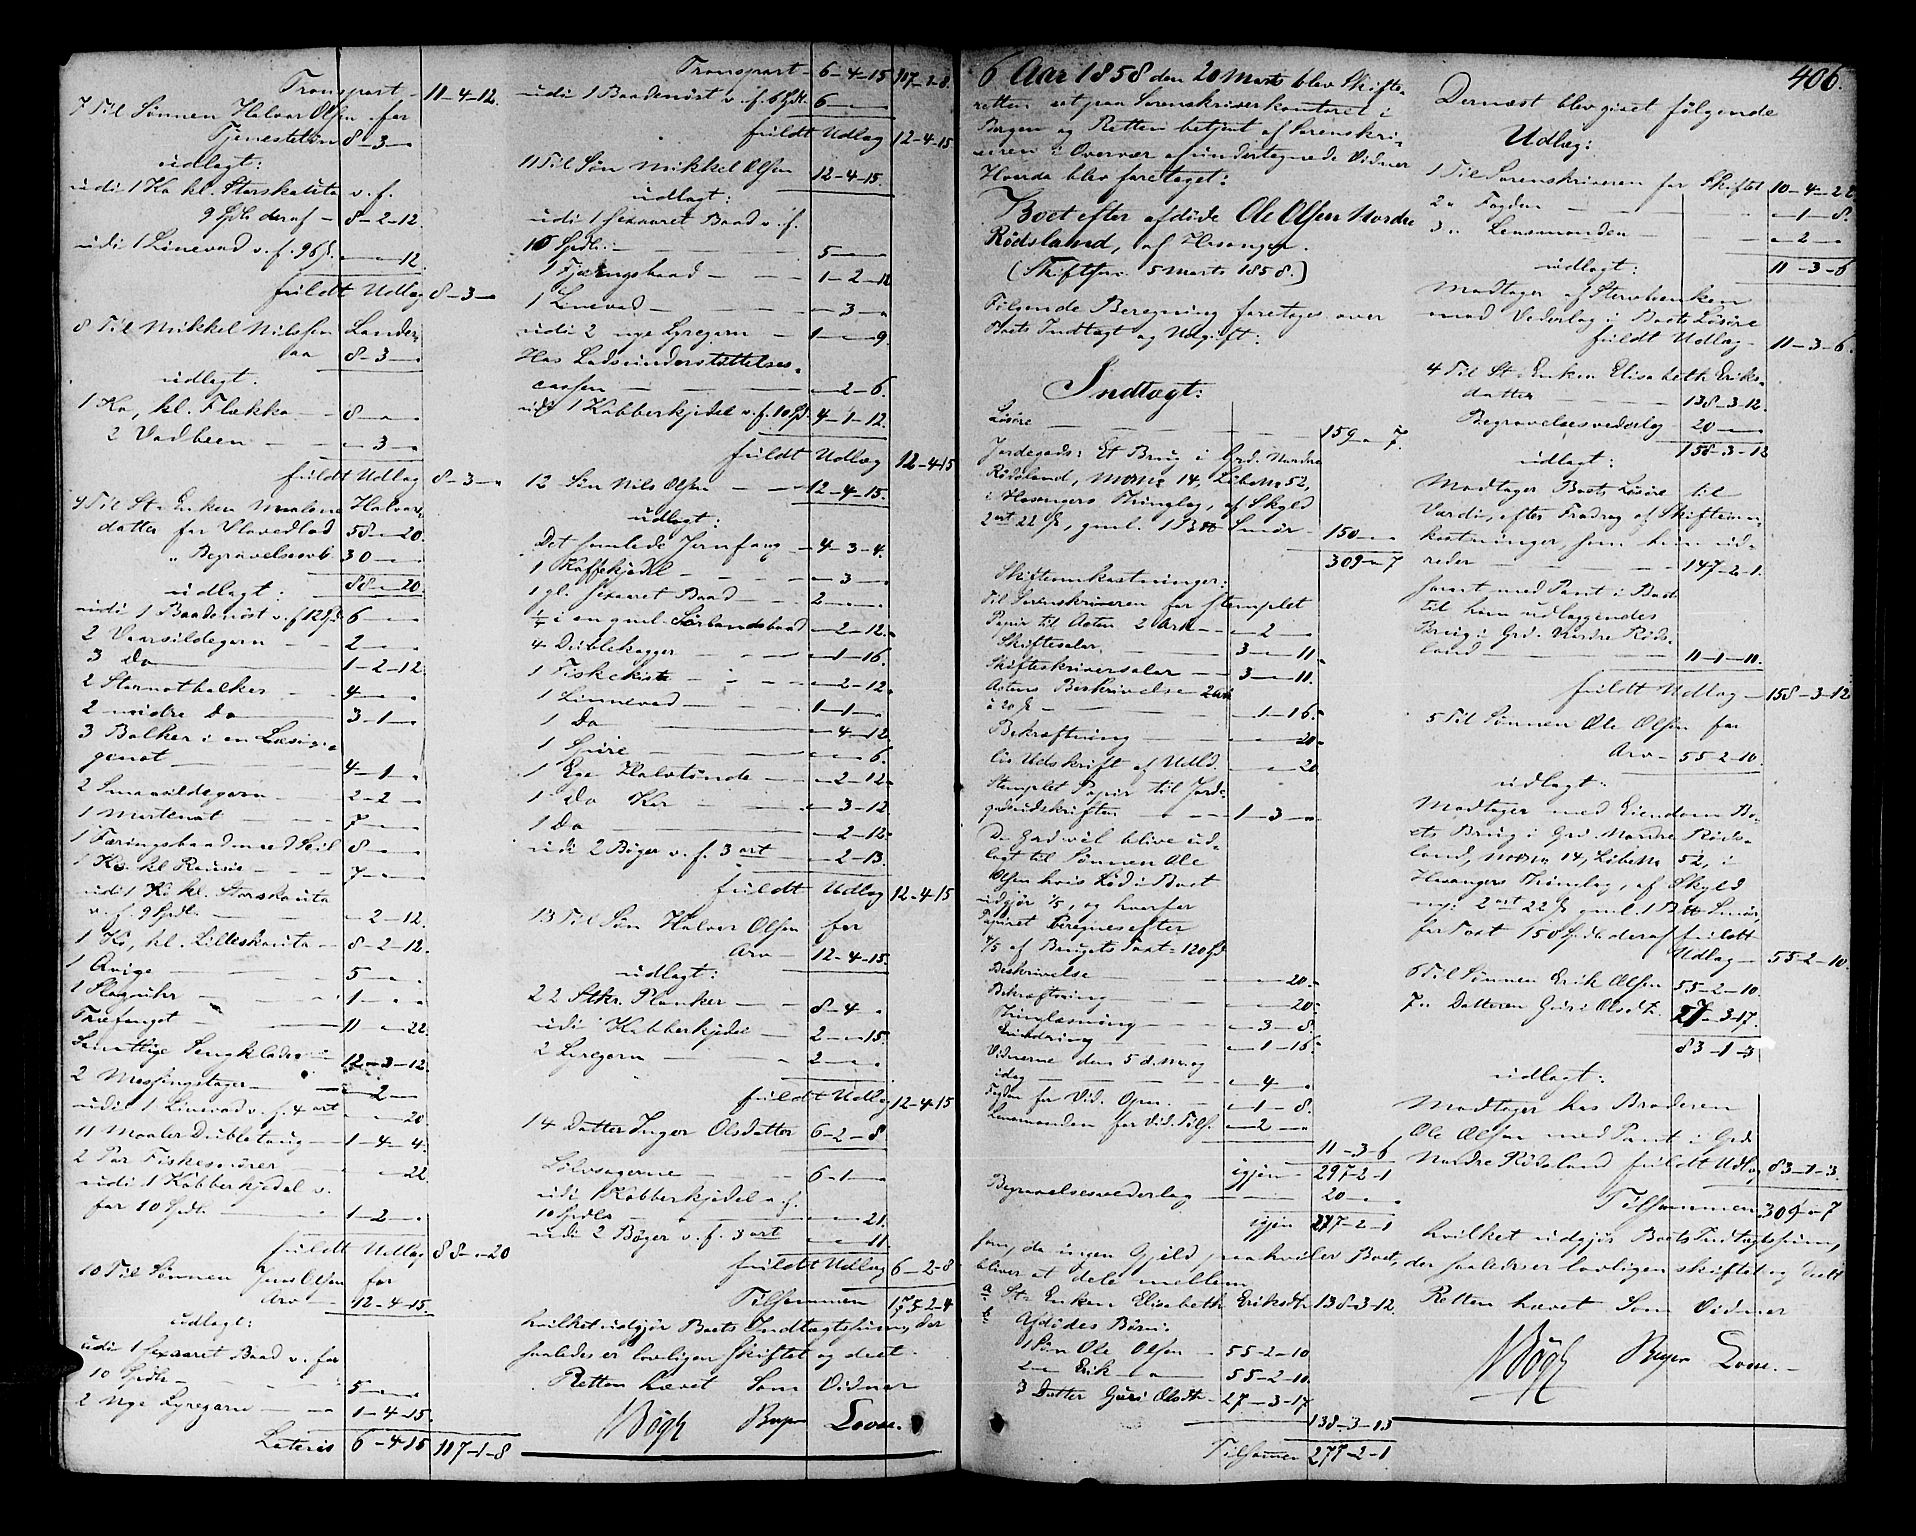 Transport - 11-4-12.
7 Til Sønnen Halvor Olsen for
Tjenesteløn 8-3-"
udlagt:
udi 1 Ko kl. Storskauta v. f.
9 Spdl. deraf - 8-2-12.
udi 1 Linevad v. f. 96 s. "-"-12.
fuldt Udlæg 8-3-"
8 Til Mikkel Nilssen
8-3-"
udlagt:
1 Ko, kl. Flekka - 8-"-"
2 Vadbeen - "-3-"
fuldt Udlæg 8-3-"
9 Til St. Enken Halvors-
datter for Hovedlod 58-"-20.
" Begravelsesomk. 30-"-"
88-"-20.
udlagt:
udi 1 Baadenøst v. f. 12 Spd. 6-"-"
2 Vaarsildegarn - 2-"-"
3 Do - 1-2-12.
2 Stornotbalker - 4-"-"
2 mindre Do - 3-1-"
3 Balker i en
genot - 4-1-"
2 Smaasildegarn - 2-2-"
1 Mortenot - 7-"-"
1 Færingsbaad med Seil 8-"-"
1 Ko, kl. - 7-"-"
udi 1 Ko kl. Storskauta
v. f. 9 Spdl. - "-2-12.
1 Ko, kl. Lilleskauta - 8-2-12.
1 Qvige - 5-"-"
1 Slaguhr - 1-"-"
Træfanget - 11-"-22.
Samtlige Sengklæder - 12-3-12.
2 Messingstager - "-2-"
udi 1 Linevad v. f. 4 ort "-"-20
11 Maaler Dubletaug - 1-4-4.
2 Par Fiskesnører - "-"-22.
udi 1 Kobberkjedel v.
for 10 Spdl. 1-2-"
fuldt Udlæg 88-"-20
10 Til Sønnen Jens Olsen for
Arv - 12-4-15.
udlagt:
udi 1 sexaaret Baad v. for
10 Spdl. - 5-"-"
2 Nye Lyregarn - 1-4-15.
Lateris 6-4-15 117-1-8
Transport - 6-4-15 117-1-8.
udi 1 Baadenøst v. f. 6 Spdl. 6-"-"
fuldt Udlæg 12-4-15
11 Til Søn Mikkel Olsen 12-4-15.
udlagt:
udi 1 sexaaret Baad v. f.
10 Spdl. - 5-"-"
1 Færingsbaad - 1-2-12
1 Linevad - "-3-"
udi 2 nye Lyregarn - 1-"-9
Hos Ladsunderstøttelses-
cassen - "-2-6
udi 1 Kobberkjedel v. f. 10 Spd. 4-1-12.
fuldt Udlæg 12-4-15
12 Søn Nils Olsen - 12-4-15.
udlagt:
Det samlede Jernfang - 4-3-4.
1 Kaffekjedel - "-3-"
1 gl. sexaaret Baad - 2-"-"
i en gml. Sørlandsbaad - "-2-12.
4 Dublekagger - "-1-16.
1 Fiskekiste - "-2-12.
1 Linnevad - 1-1-"
1 Do - "-4-12.
1 Spire - "-"-6
1 Ege Halvtønde - "-2-12.
1 do Kar - "-3-12.
1 Do - "-2-12.
udi 2 Bøger v. f. 3 ort - "-2-13.
fuldt Udlæg 12-4-15
13 Til Søn Halvor Olsen for
Arv - 12-4-15.
udlagt:
22 Stkr. Planker - 8-4-"
udi 1 Kobberkjedel - 2-"-15.
2 Lyregarn - 2-"-"
fuldt Udlæg 12-4-15
14 Datter Inger Olsdatter 6-2-8
Sølvsagerne - 6-1-"
udi 1 Kobberkjedel v. f.
10 Spdl. - "-"-21.
udi 2 Bøger v. f. 3 ort "-"-11.
fuldt Udlæg 6-2-8
Tilsammen 175-2-4
hvilket udgjør Boets Indtægtssum, der
saaledes er lovligen skiftet og deelt.
Retten hævet Som Vidner
Bøgh
6 Aar 1858 den 20 Marts blev Skifte-
retten sat paa Sorenskriverkontoret i
Borgen og Retten betjent af Sorenskri-
veren i Overvær af undertegnede Vidner
Hvorda blev foretaget:
Boet efter afdøde Ole Olsen Nordre
Rødsland, af
(Skiftefor. 5 Marts 1858.)
Følgende Beregning foretages over
Boets Indtægt og Udgift:
Indtægt:
Løsøre - 159-"-7.
Jordegods: Et Brug i Grd. Nordre
Rødsland, 14, Løbe No 52,
i Thinglag, af Skyld
2 ort 22 s, gml. 1 Smør - 150-"-"
309-"-7
Skifteomkostninger:
Til Sorenskriveren for stemplet
Papir til Acten 2 Ark - "-2-"
Skiftesalær - 3-"-11.
Skifteskriversalær - 3-"-11.
Actens Beskrivelse 2 Ark
à 20 s - "-1-16.
Bekræftning - "-"-20.
lis Udskrift af Udld. - "-"-20
Stemplet Papir til Jorde-
godsudskriften - 1-3-"
Da Grd. vil blive ud-
lagt til Sønnen Ole
Olsen hvis Lod i Boet
udgjør 1/5, og hvorfor
Papiret beregnes efter
4/5 af Brugets Taxt = 120 Spd
Beskrivelse - "-"-20.
Bekræftning - "-"-20.
Thinglæsning - "-3-8.
Erindring - "-1-16.
Vidnerne den 5 d. M. og
idag - "-4-"
Fogden for Vid. Gjen. - "-1-8.
Lensmanden for Vid. Tils. "-2-"
11-3-6
igjen - 297-2-1
Begravelsesvederlag - 20-"-"
igjen 277-2-1
som, da ingen Gjeld paahviler Boet,
bliver at dele mellem
a St. Enken Elisabeth Eriksdt. 138-3-12.
b Afdødes Børn:
1 Søn Ole Olsen - 55-2-10
2 " Erik " - 55-2-10.
3 Datter Guri Olsdt. - 27-3-17
138-3-13
Tilsammen 277-2-1
406.
Dernæst blev gjort følgende
Udlæg:
1 Til Sorenskriveren for Skiftet 10-4-22
2 " Fogden - "-1-8.
3 " Lensmanden - "-2-"
11-3-6
udlagt:
Modtager af Stervboenken
mod Vederlag i Boets Løsøre
fuldt Udlæg - 11-3-6.
4 Til St. Enken Elisabeth Eriks-
datter - 138-3-12.
Begravelsesvederlag 20-"-"
158-3-12
udlagt:
Modtager Boets Løsøre til
Værdi, efter Fradrag af Skifteom-
kostninger som hun ud-
reder - 147-2-1.
samt med Pant i Boet
til ham udlæggendes
Brug i Grd. Nordre Røds-
land - 11-1-11.
fuldt Udlæg - 158-3-12
5 Til Sønnen Ole Olsen for
Arv - 55-2-10.
udlagt:
Modtager med Eiendom Bo-
ets Brug i Grd. Nordre Røds-
land, 14, Løbe No 52, i
Thinglag, af Skyld
ny: 2 ort 22 s gml. 1 Smør,
for Taxt 150 Spdl. deraf fuldt
Udlæg - 55-2-10.
6 Til Sønnen Erik Olsen 55-2-10.
7 " Datteren Guri Olsdt. 27-3-17.
83-1-3
udlagt:
Modtager hos Broderen
Ole Olsen med Pant i Grd.
Nordre Rødsland fuldt Udlæg 83-1-3.
Tilsammen 309-"-7
hvilket udgjør Boets Indtægtssum,
der saaledes er lovligen skiftet og deelt
Retten hævet Som Vidner
Bøgh